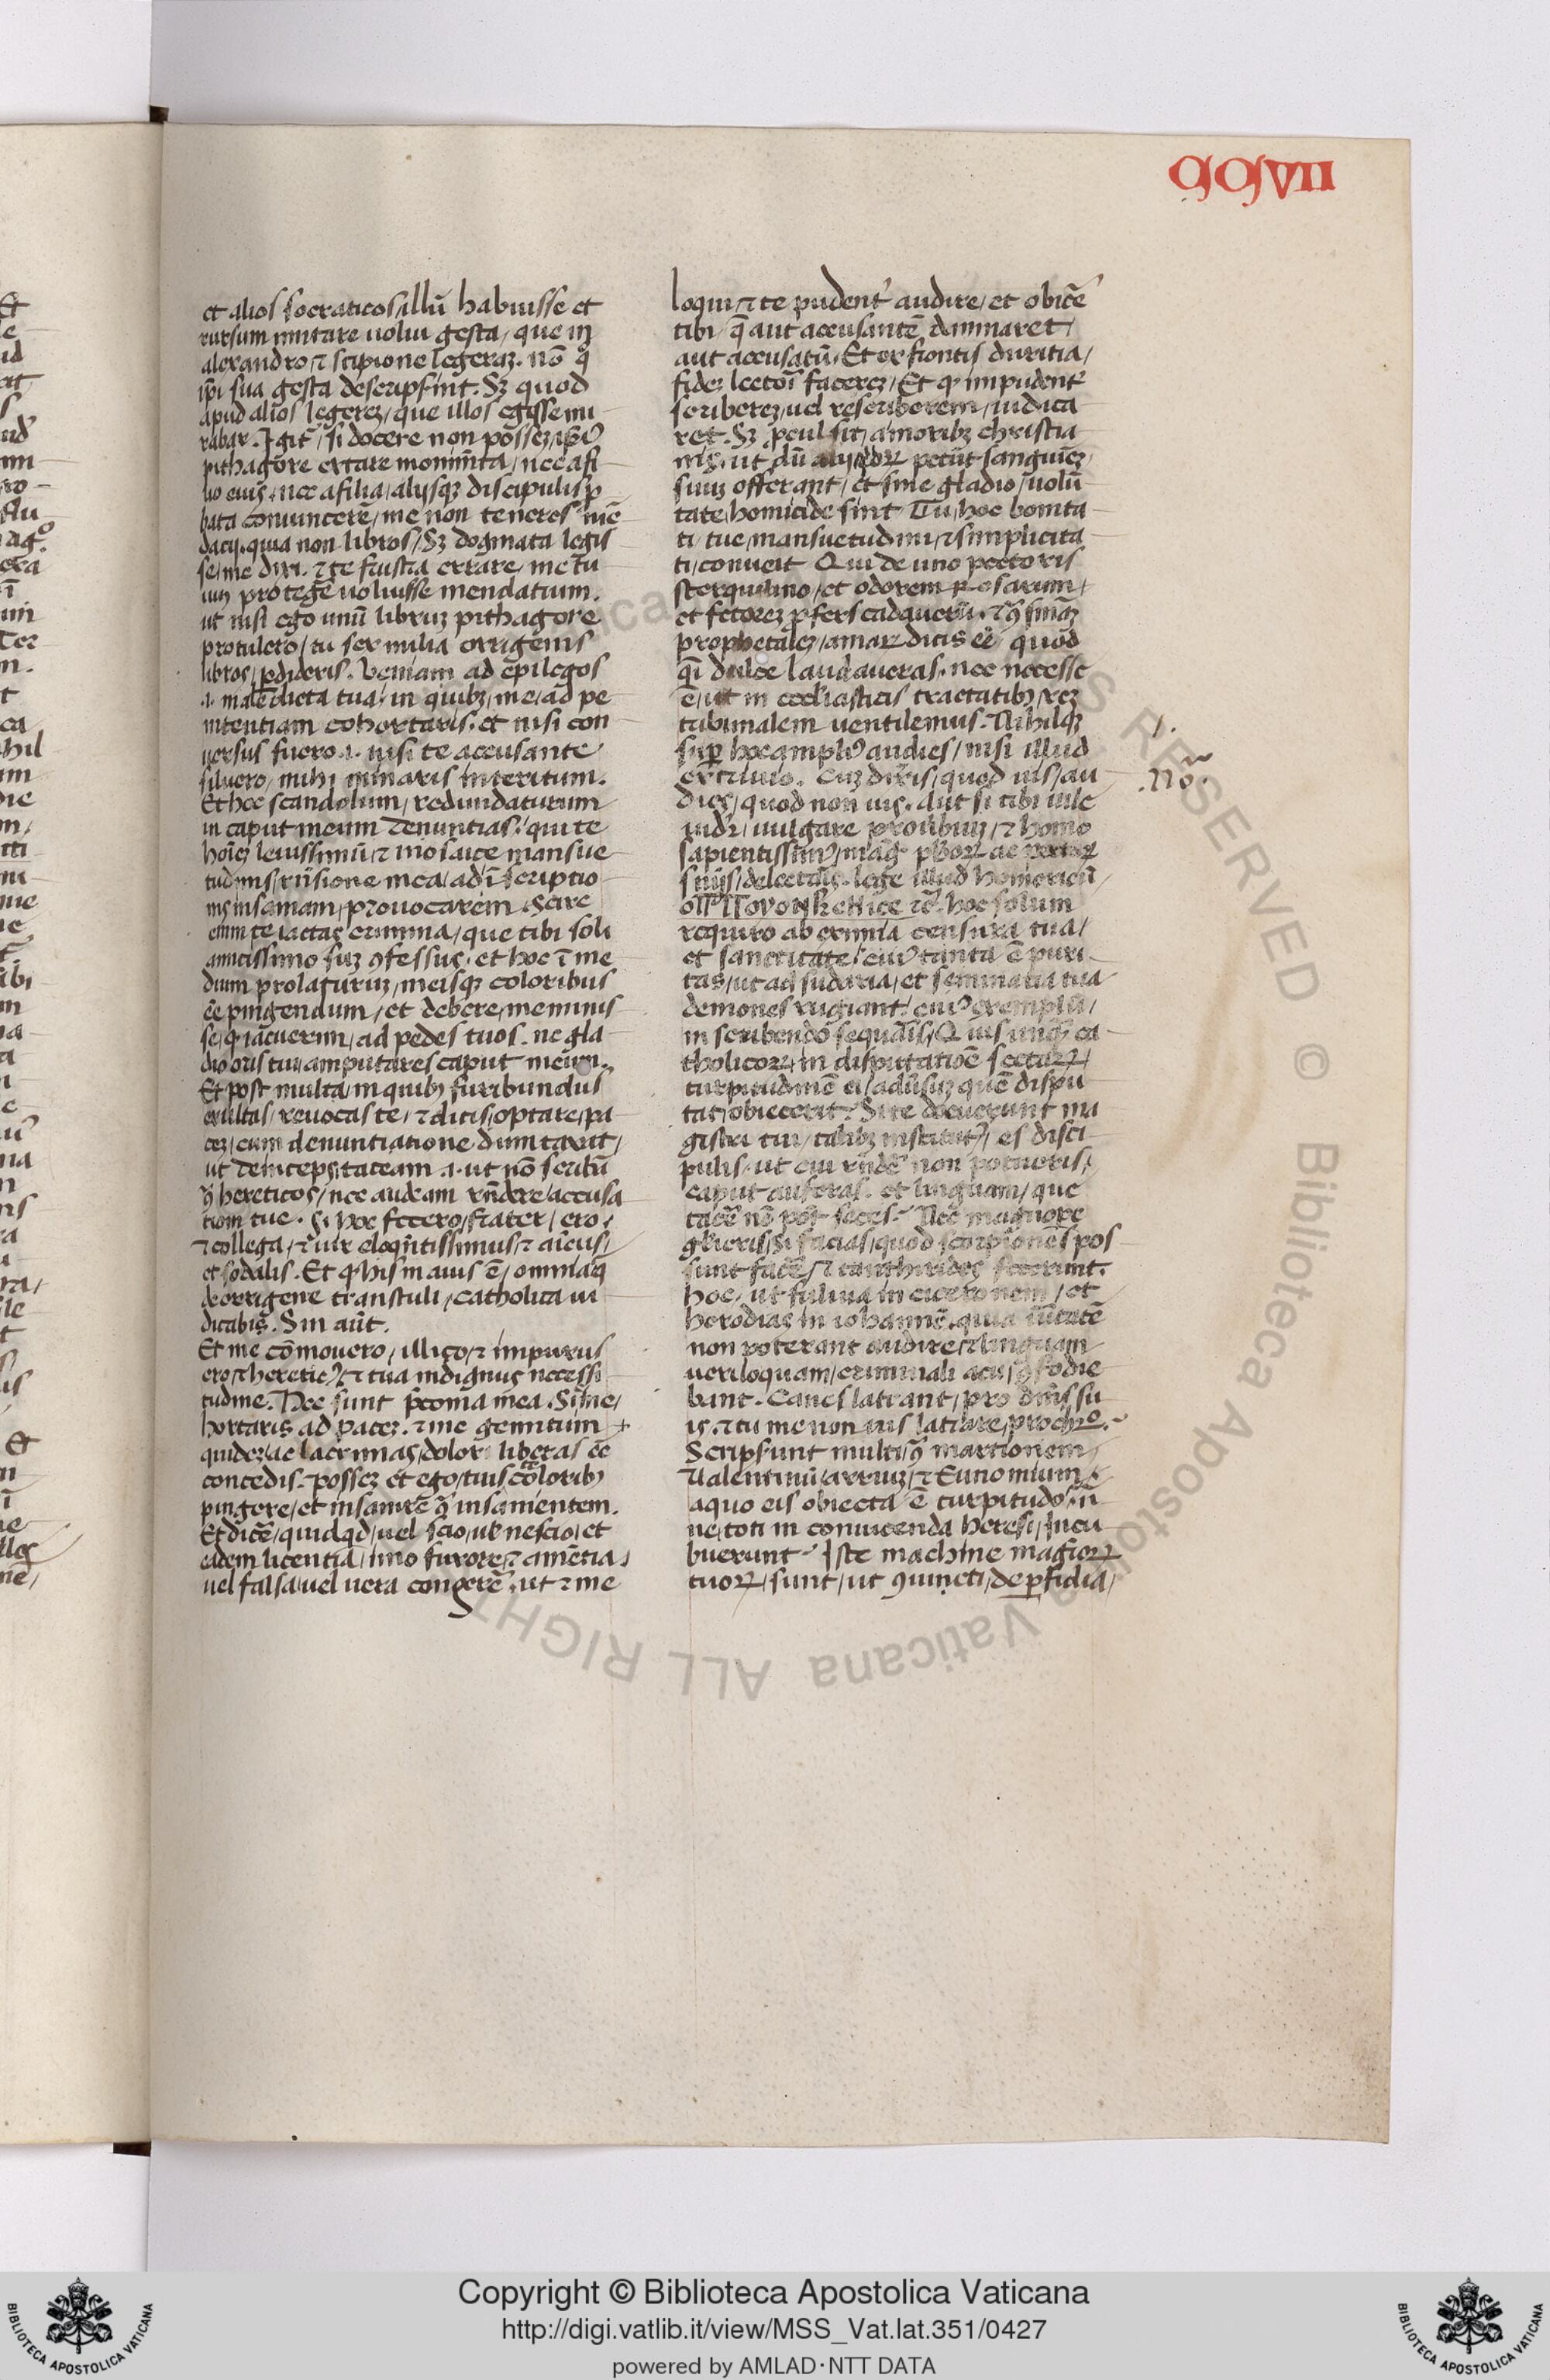 CCVII
et alios socraticos/illū habuisse et
rursum imitare uolui gesta, que in
alexandro ⁊ scipione legeraȝ. nō q̊
ip̄i sua gesta descripsint. Sȝ quod
apud alios legereȝ, que illos egisse mi
rabar. Igit᷑, si docere non posseȝ, ip̄iꝰ
pithagore extare monim̄ta, nec a fi
lio eius, nec a filia, alijsqȝ discipulis ꝓ
bata conuincerē, me non teneres mē
dacij. quia non libros, Sȝ dogmata legis
se, me dixi. ⁊ te frustra errare, me tu
uȝ protegē uoluisse mendatium.
ut nisi ego unū libruȝ pithagore
protulero, tu sex milia origenis
libros, ꝑdideris. Veniam ad epilegos
.i. maledicta tua, in quibȝ, me, ad pe
nitentiam cohortaris. et nisi con
uersus fuero .i. nisi te accusante
siluero, mihi minaris interitum.
Et hoc scandolum, redundaturum
in caput meum denuntias, qui te
hoīeȝ leuissimū ⁊ mosaice mansue
tudinis, rūsione mea, ad ī scriptio
nis insaniam, prouocarem. Scire
enim te iactas crimina, que tibi soli
amicissimo suȝ ꝯfessus, et hoc ī me
dium prolaturuȝ, meisqȝ coloribus
eē pingendum, et debere, meminis
se, qꝫ iacuerim, ad pedes tuos. ne gla
dio oris tui, amputares caput meum.
Et post multa, in quibȝ furibundus
exultas, reuocas te, ⁊ dicis, optare, pa
ceȝ, cum denuntiatione dumtaxat,
ut deinceps, taceam .i. ut nō scribā
ꝯ̄ hereticos, nec audeam rn̄dere, accusa
tioni tue. Si hoc fecero, frater, ero,
⁊ collega, ⁊ uir eloq̄ntissimus, ⁊ amicus,
et sodalis. Et qꝫ his maius ē, omnia q̄
de origene transtuli, catholica iu
dicabis. Sin aūt.
Et me cōmouero, illico, ⁊ impurus
ero, ⁊ hereticꝰ, ⁊ tua indignus necessi
tudine. Hec sunt p̄conia mea. Si me,
hortaris ad paceȝ. ⁊ me gemitum
quideȝ, ac lacrimas, dolori liberas eē
concedis. posseȝ et ego, tuis coloribȝ
pingere, et insanire ꝯ̄ insanientem.
Et dicē, quidqd, uel scio, uel nescio, et
eadem licentia, imo furore, ⁊ amētia,
uel falsa, uel uera congerē. ut ⁊ me
loqui, ⁊ te pudent᷑ audire, et obicē
tibi, q̄ aut accusantē damnaret,
aut accusatū. Et ex frontis duritia,
fideȝ lectori facereȝ, Et qꝫ impudent᷑
scribereȝ, uel rescriberem, iudica
ret. Sȝ ꝓcul sit, a moribȝ christia
nis, ut dū petūt sanguineȝ,
suuȝ offerant, et sine gladio, uolū
tate, homicide sint Tu, hoc bonita
ti tue, mansuetudini, ⁊ simplicita
ti, conueit Qui de uno pectoris
sterquilino, et odorem rosarum,
et fetoreȝ ꝓfers cadauerū. ⁊ ꝯ̄ sniaȝ
prophetaleȝ, amarȝ dicis eē quod
q̄i dulce laudaueras. nec necesse
ē, ut in eccliasticis tractatibȝ, reȝ
tribunalem uentilemus. Nihilqȝ
suꝑ hoc ampliꝰ audies, nisi illud
ex triuio. Cuȝ dixeris, quod uis, au
dies, quod non uis. Aut si tibi uile
uidr̄, uulgare prouerbiuȝ, ⁊ homo
sapientissimꝰ, mag̅
. lege illud homericū
hoc solum
requiro ab eximia censura tua,
et sanctitate, cuiꝰ tanta ē puri
tas, ut ad sudaria, et semicintia tua
demones rugiant, cuiꝰ exemplū,
in scribendo sequaris. Quis unqȝ ca
tholicorꝝ, in disputatiōe sectarꝝ,
turpitudinē ei, aduersuȝ quē dispu
tat, obiecerit. Sic te docuerunt ma
gistri tui, talibȝ institutꝰ, es disci
pulis, ut cui rn̄dē non potueris,
caput auferas. et linguam, que
tacē nō pōt seces. Nec magnopere
glīeris, si facias, quod scorpiones pos
sunt facē, ⁊ cantharides fecerunt.
hoc, ut fuluia in ciceronem, et
herodias in iohannē. quia ūitatē
non poterant audire, ⁊ linguam
ueriloquam, criminali acu, ꝯfodie
bant. Canes latrant, pro dn̄is su
is. ⁊ tu me non uis latrare, pro chro.
Scripserunt multi, ꝯ̄ martionem,
Valentinū, arriuȝ, ⁊ Eunomium,
a quo eis obiecta ē turpitudo, ⁊ n̄
ne, toti in conuicenda heresi, Incu
buerunt. Iste machine magr̄orꝝ
tuorꝝ, sunt, ut ꝯuincti, de ꝑfidia,
.No.
Copyright © Biblioteca Apostolica Vaticana
http://digi.vatlib.it/view/MSS_Vat.lat.351/0427
powered by AMLAD·NTT DATA
BIBLIOTECA APOSTOLICA VATICANA
BIBLIOTECA APOSTOLICA VATICANA